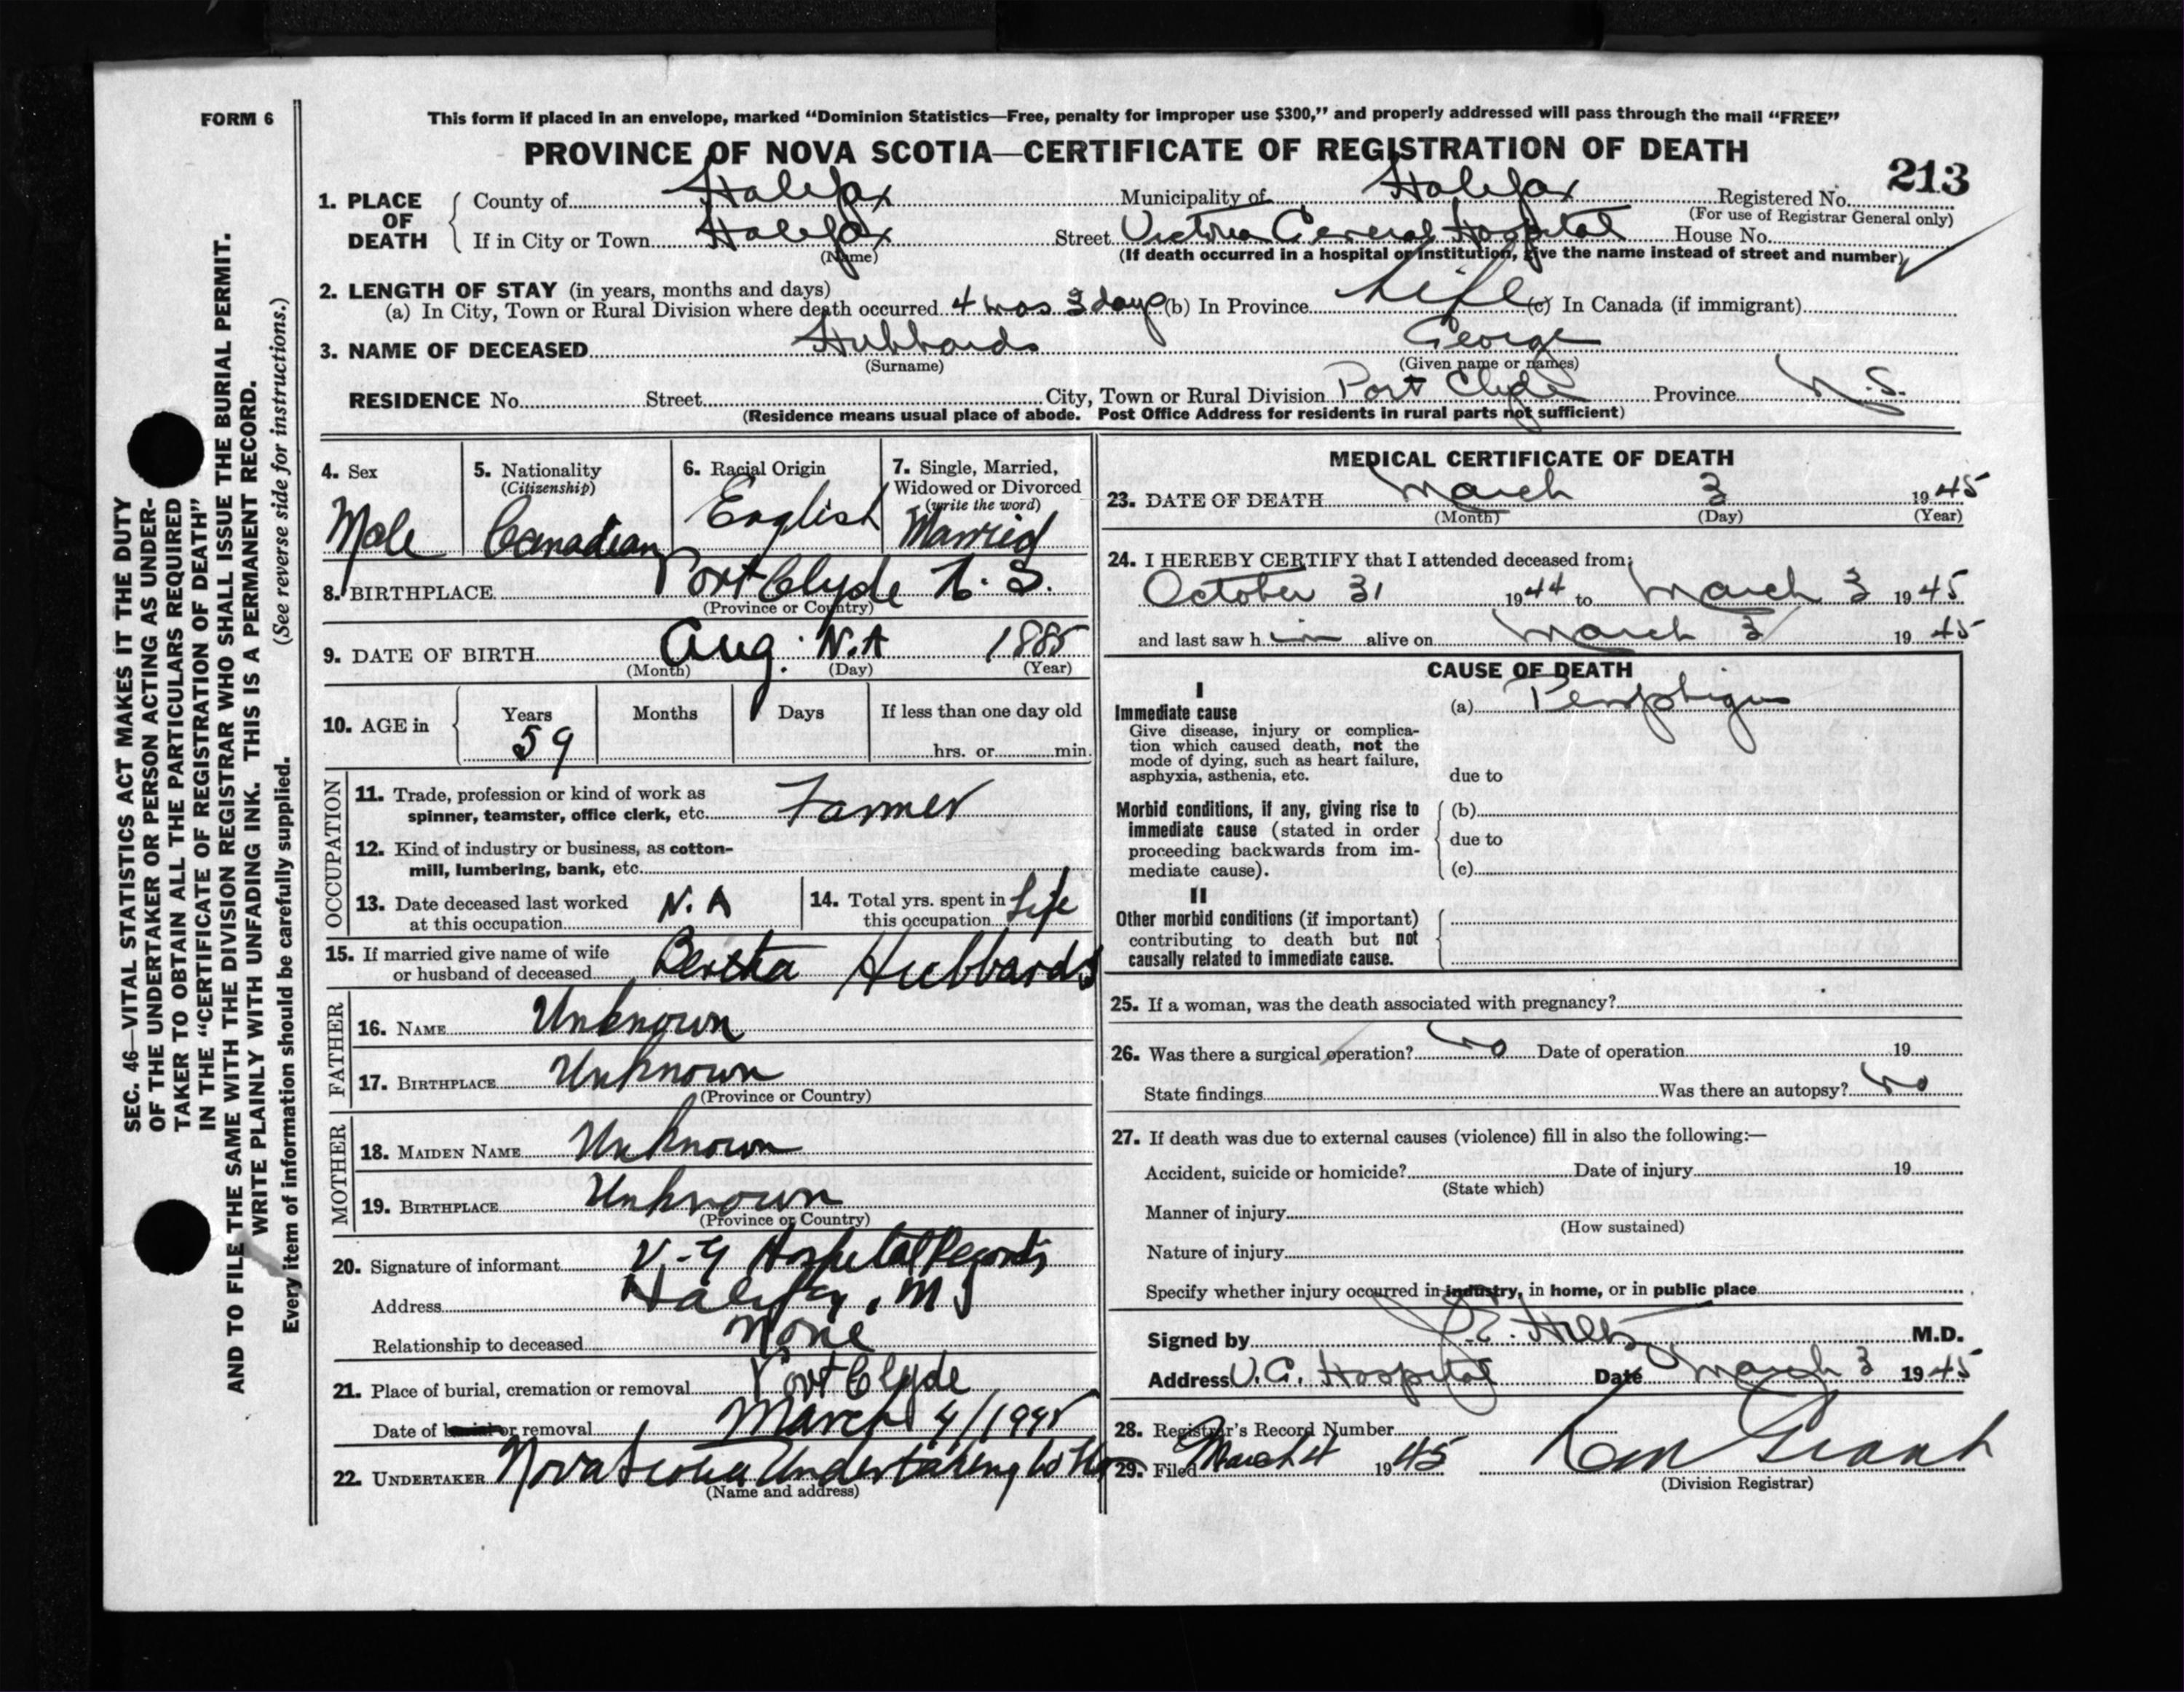 FORM 6
This form if placed in an envelope, marked "Dominion Statistics—Free, penalty for improper use $300," and properly addressed will pass through the mail "FREE"
PROVINCE OF NOVA SCOTIA—CERTIFICATE OF REGISTRATION OF DEATH
213
1. PLACE OF DEATH
County of Halifax Municipality of Halifax Registered No.
(For use of Registrar General only)
If in City or Town Halifax Street Victoria General Hospital House No.
(Name) (If death occurred in a hospital or institution, give the name instead of street and number)
2. LENGTH OF STAY (in years, months and days)
(a) In City, Town or Rural Division where death occurred 4 mos 3 days (b) In Province Life (c) In Canada (if immigrant)
3. NAME OF DECEASED Hubbards George
(Surname) (Given name or names)
RESIDENCE No. Street City, Town or Rural Division Port Clyde Province N.S.
(Residence means usual place of abode. Post Office Address for residents in rural parts not sufficient)
4. Sex
Male
5. Nationality
(Citizenship)
Canadian
6. Racial Origin
English
7. Single, Married,
Widowed or Divorced
(write the word)
Married
8. BIRTHPLACE Port Clyde N. S.
(Province or Country)
9. DATE OF BIRTH Aug. N.A 1885
(Month) (Day) (Year)
10. AGE in
Years Months Days If less than one day old
59 hrs. or min.
OCCUPATION
11. Trade, profession or kind of work as
spinner, teamster, office clerk, etc. Farmer
12. Kind of industry or business, as cotton-
mill, lumbering, bank, etc.
13. Date deceased last worked
at this occupation N. A
14. Total yrs. spent in
this occupation Life
15. If married give name of wife
or husband of deceased Bertha Hubbards
FATHER
16. NAME Unknown
17. BIRTHPLACE Unknown
(Province or Country)
MOTHER
18. MAIDEN NAME Unknown
19. BIRTHPLACE Unknown
(Province or Country)
20. Signature of informant V-G Hospital Records
Address Halifax, N S
Relationship to deceased None
21. Place of burial, cremation or removal Port Clyde
Date of burial or removal March 4/1945
22. UNDERTAKER Nova Scotia Undertaking Co Hfx
(Name and address)
MEDICAL CERTIFICATE OF DEATH
23. DATE OF DEATH March 3 1945
(Month) (Day) (Year)
24. I HEREBY CERTIFY that I attended deceased from:
October 31 1944 to March 3 1945
and last saw him alive on March 3 1945
CAUSE OF DEATH
I
Immediate cause
Give disease, injury or complica-
tion which caused death, not the
mode of dying, such as heart failure,
asphyxia, asthenia, etc.
(a) Pemphigus
due to
Morbid conditions, if any, giving rise to
immediate cause (stated in order
proceeding backwards from im-
mediate cause).
(b)
due to
(c)
II
Other morbid conditions (if important)
contributing to death but not
causally related to immediate cause.
25. If a woman, was the death associated with pregnancy?
26. Was there a surgical operation? No Date of operation 19
State findings Was there an autopsy? No
27. If death was due to external causes (violence) fill in also the following:—
Accident, suicide or homicide? Date of injury 19
(State which)
Manner of injury
(How sustained)
Nature of injury
Specify whether injury occurred in industry, in home, or in public place
Signed by J.E. Hiltz M.D.
Address V.G. Hospital Date March 3 1945
28. Registrar's Record Number
29. Filed March 4 1945
Grant
(Division Registrar)
SEC. 46—VITAL STATISTICS ACT MAKES IT THE DUTY
OF THE UNDERTAKER OR PERSON ACTING AS UNDER-
TAKER TO OBTAIN ALL THE PARTICULARS REQUIRED
IN THE "CERTIFICATE OF REGISTRATION OF DEATH"
AND TO FILE THE SAME WITH THE DIVISION REGISTRAR WHO SHALL ISSUE THE BURIAL PERMIT.
WRITE PLAINLY WITH UNFADING INK. THIS IS A PERMANENT RECORD.
Every item of information should be carefully supplied. (See reverse side for instructions.)